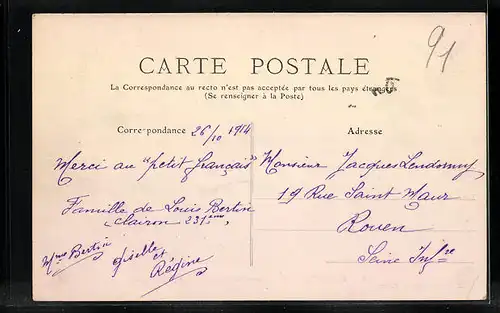 91
CARTE POSTALE
La Correspondance au recto n'est pas acceptée par tous les pays étrangers
(Se renseigner à la Poste)
Correspondance 26/10 1914
Adresse
Merci au "petit français"
Famille de Louis Bertin
clairon 231ème
Mme Bertin
Giselle
et
Régine
Monsieur Jacques
19 Rue Saint Maur
Rouen
Seine Infre